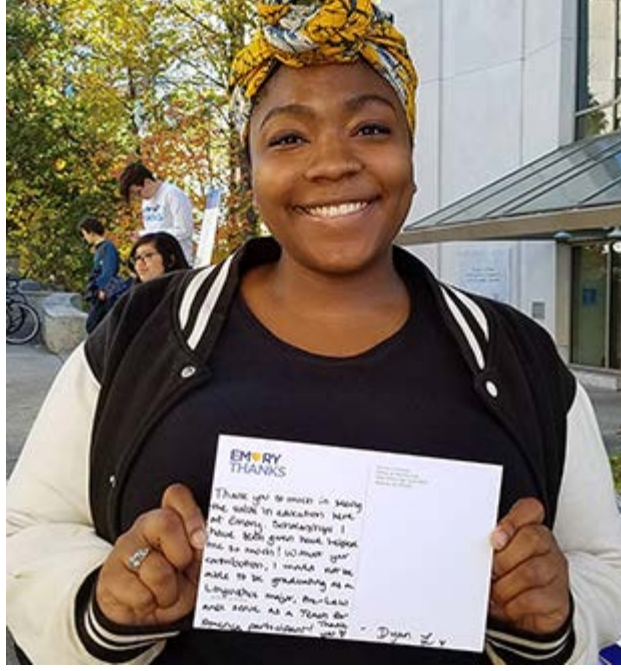 EMORY
THANKS
Thank you so much in seeing
the value in education here
at Emory. Scholarships I
have been given have helped
me so much! Without your
contribution, I would not be
able to be graduating as a
Linguistics major, Pre-Law
and serve as a Teach for
America participant! Thank
you
- Dyan L